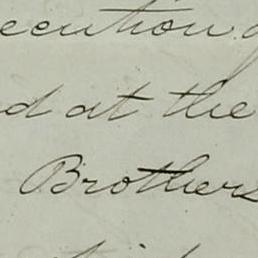 ecution
d at the
Brothers